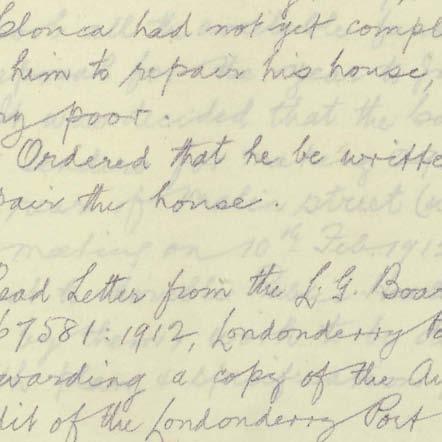 clonca had not yet compl
him to repair his house,
ry poor.
Ordered that he be writte
pair the house.
ead Letter from the L. G. Boar
67581. 1912, Londonderry Po
warding a copy of the Au
dit of the Londonderry Port